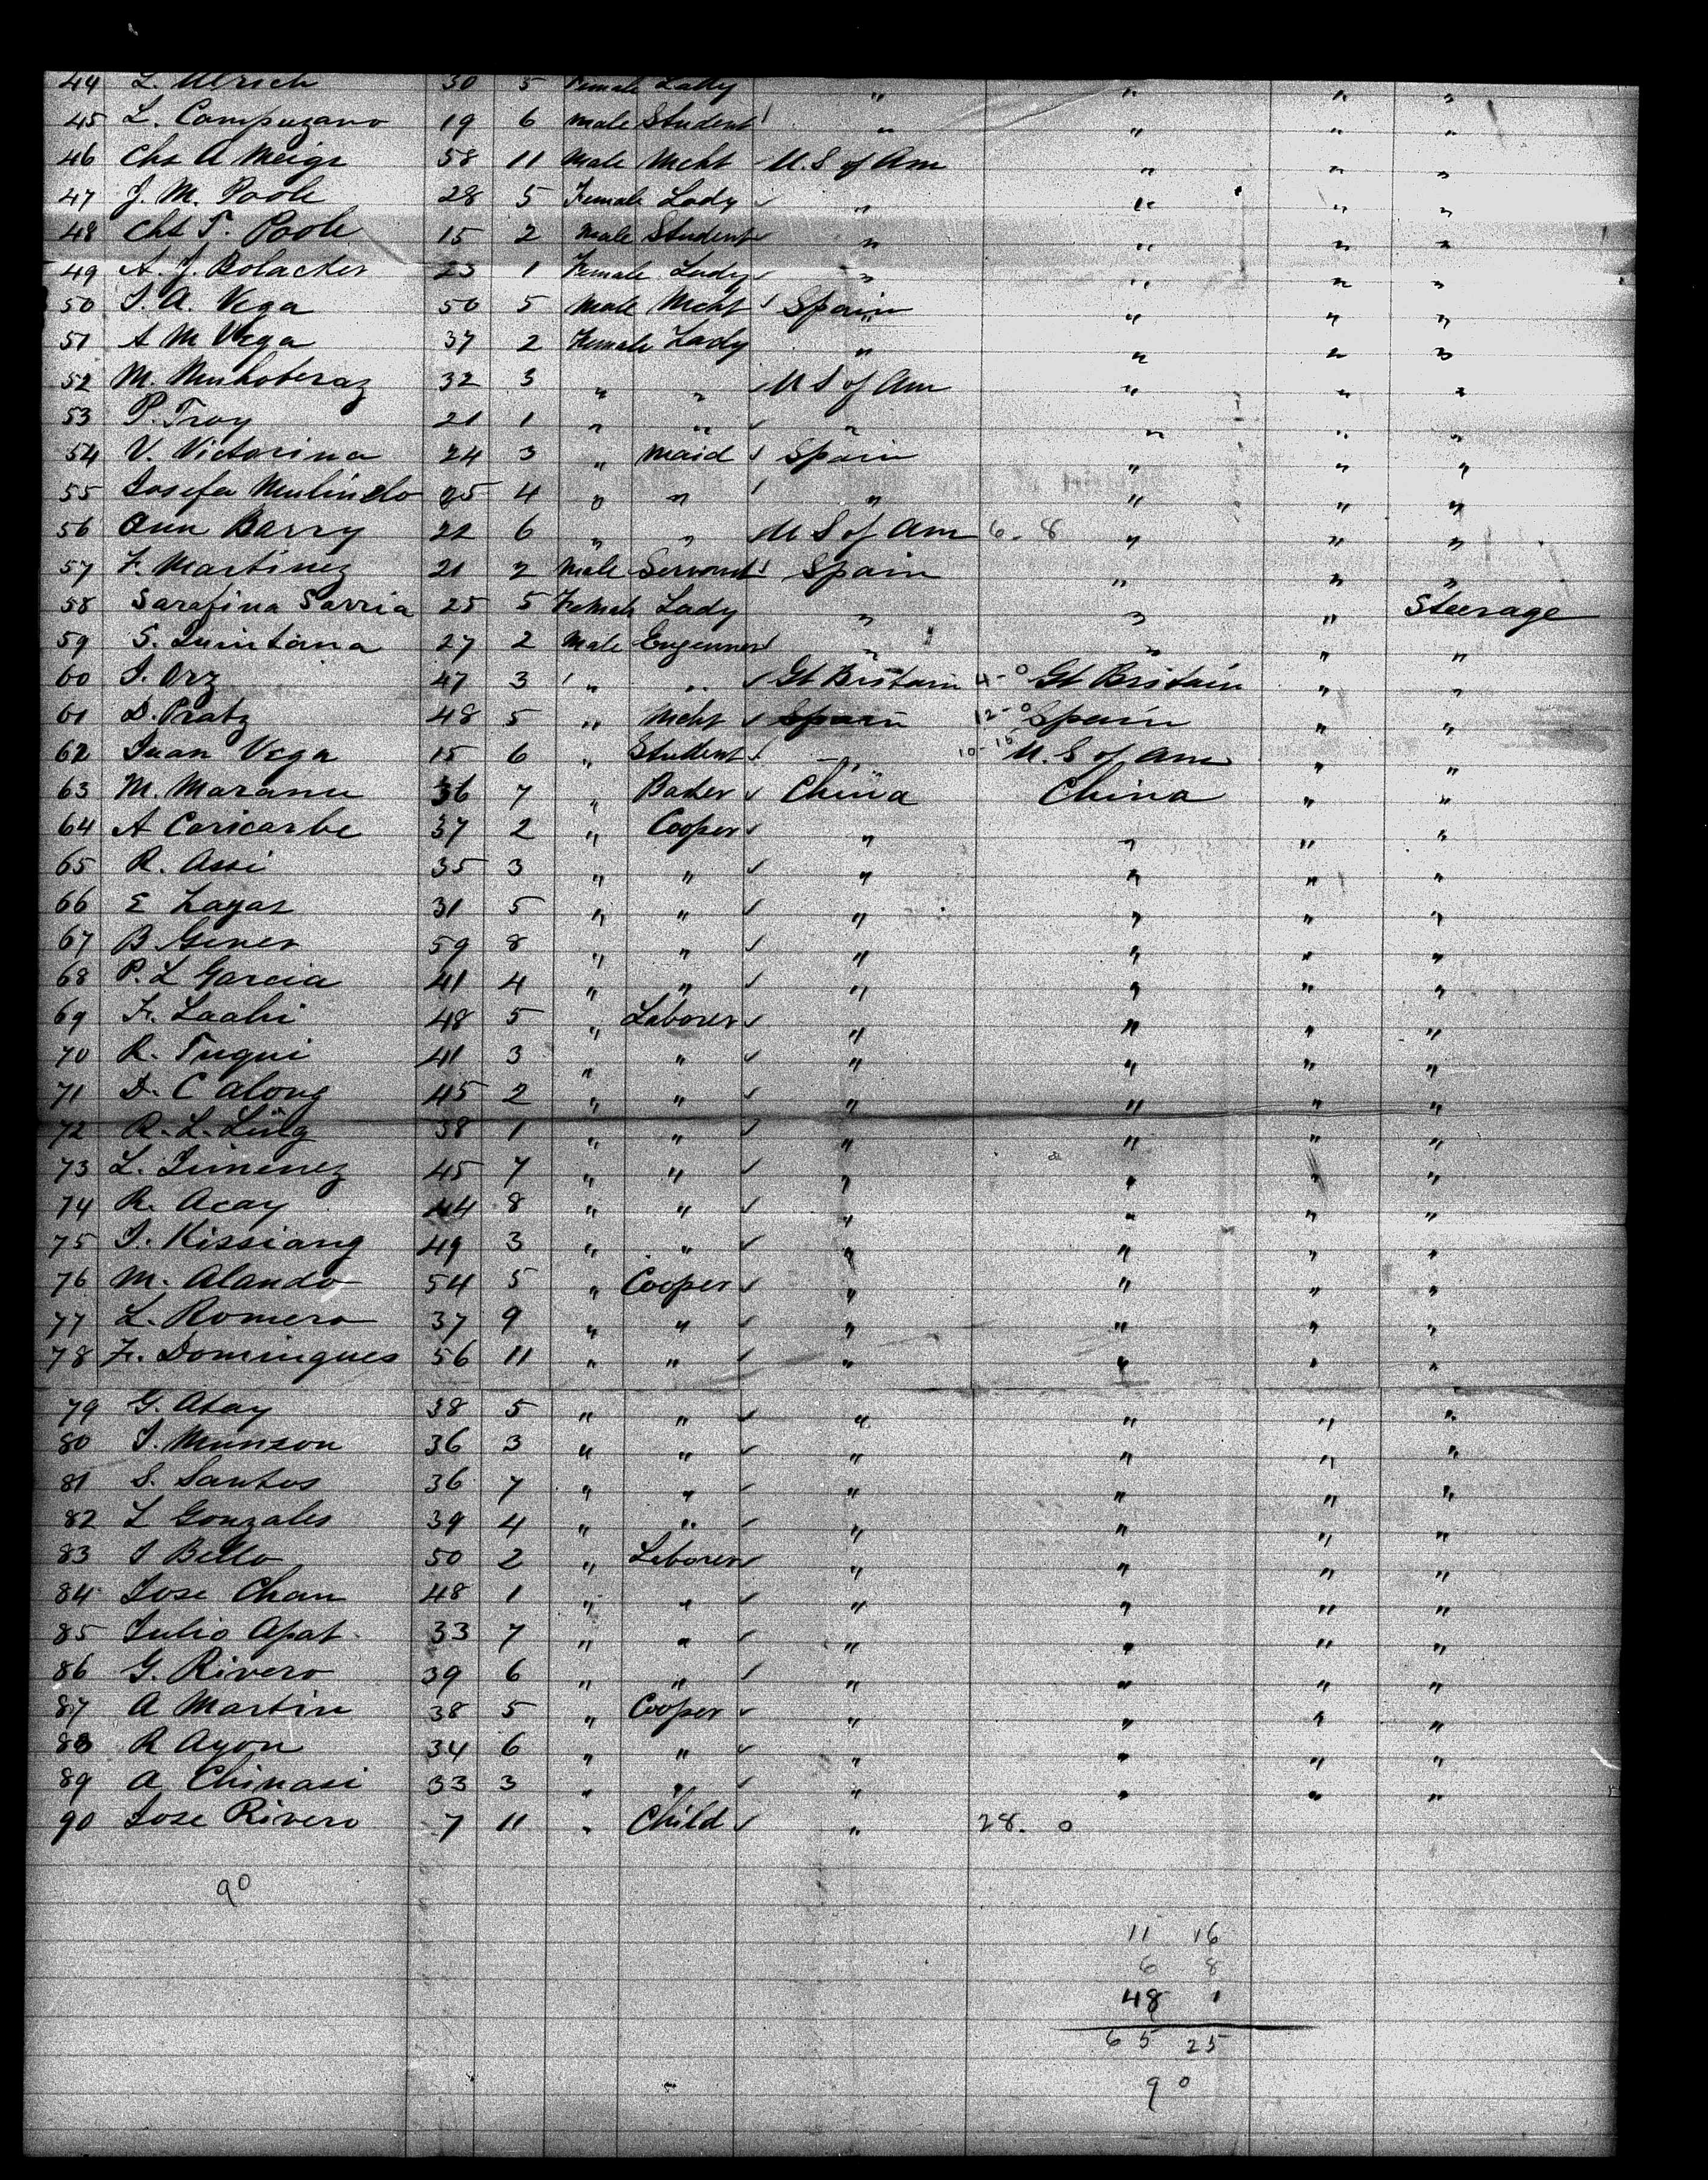 44 L. Ulrich 30 5 Female Lady " " " "
45 L. Campuzano 19 6 Male Student " " " "
46 Chs A Meigs 58 11 Male Mcht U.S of Am " " "
47 J. M. Poole 28 5 Female Lady " " " "
48 Chs T. Poole 15 2 Male Student " " " "
49 A. J. Bolacher 23 1 Female Lady " " " "
50 I. A. Vega 50 5 Male Mcht Spain " " "
51 A M Vega 37 2 Female Lady " " " "
52 M. 32 3 " " U S of Am " " "
53 P. Troy 21 1 " " " " " "
54 V. Victorina 24 3 " Maid Spain " " "
55 Josefa 25 4 " " " " " "
56 Ann Barry 22 6 " " U S of Am 6. 8 " " "
57 F. Martinez 21 2 Male Servant Spain " " "
58 Sarafina Sarria 25 5 Female Lady " " " Steerage
59 S. Quintana 27 2 Male Engenner " " " "
60 I. Orz 47 3 " " Gt Britain 4-0 Gt Britain " "
61 D. Pratz 48 5 " Mcht Spain 12-0 Spain " "
62 Juan Vega 15 6 " Student " U.S of Am " "
63 M. Maranu 36 7 " Baker China China " "
64 A Caricarbe 37 2 " Cooper " " " "
65 R. Assi 35 3 " " " " " "
66 E Layas 31 5 " " " " " "
67 B Gener 59 8 " " " " " "
68 P. L Garcia 41 4 " " " " " "
69 F. Laahi 48 5 " Laborer " " " "
70 R. Tuqui 41 3 " " " " " "
71 D. C Along 45 2 " " " " " "
72 R. L. Ling 38 1 " " " " " "
73 L. Jimenez 45 7 " " " " " "
74 R. Acay 44 8 " " " " " "
75 I. Kissiang 49 3 " " " " " "
76 M. Alando 54 5 " Cooper " " " "
77 L. Romero 37 9 " " " " " "
78 F. Domingues 56 11 " " " " " "
79 G. Atay 38 5 " " " " " "
80 I. Munson 36 3 " " " " " "
81 S. Santos 36 7 " " " " " "
82 L Gonzales 39 4 " " " " " "
83 I Bello 50 2 " Laborer " " " "
84 Jose Chan 48 1 " " " " " "
85 Julio Apat 33 7 " " " " " "
86 G. Rivero 39 6 " " " " " "
87 A Martin 38 5 " Cooper " " " "
88 R Ayon 34 6 " " " " " "
89 A Chinasi 33 3 " " " " " "
90 Jose Rivero 7 11 " Child " 28. 0
90
11 16
6 8
48 1
65 25
90